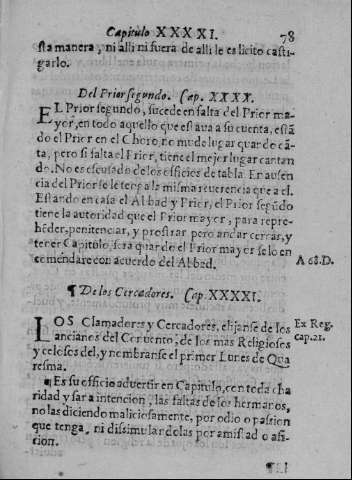 Capitulo XXXXI. 78
sta manera, ni alli ni fuera de alli le es licito casti-
garlo.
Del Prior segundo. Cap. XXXX.
EL Prior segundo, sucede en falta del Prior ma-
yor, en todo aquello que estaua a su cuenta, estā
do el Prior en el Choro, no mude lugar quando cā-
ta, pero si falta el Prior, tiene el mejor lugar cantan
do. No es escusado de los officios de tabla. En ausen
cia del Prior se le tenga la misma reuerencia que a el.
Estando en casa el Abbad y Prior, el Prior segūdo
tiene la autoridad que el Prior mayor, para repre-
hēder, penitenciar, y prostrar pero andar cercas, y
tener Capitulo, sera quando el Prior mayor se lo en
comendare con acuerdo del Abbad. A 68. D.
¶ De los Cercadores. Cap. XXXXI.
LOS Clamadores y Cercadores, elijanse de los Ex Reg.
ancianos del Conuento, de los mas Religiosos cap. 21.
y celosos del, y nombranse el primer Lunes de Qua
resma.
¶ Es su officio aduertir en Capitulo, con toda cha
ridad y sana intencion, las faltas de los hermanos,
no las diciendo maliciosamente, por odio o passion
que tenga, ni dissimulandolas por amistad o afi-
cion.